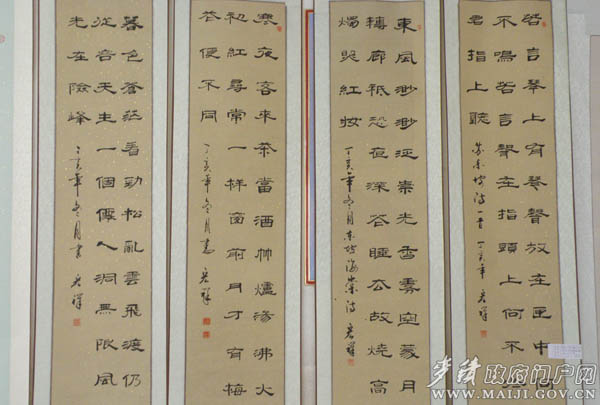 若言琴上有琴聲放在匣中
不鳴若言聲在指頭上何不
君指上聽 蘇東坡詩一首 丁亥年 君祥
東風渺渺泛崇光香霧空蒙月
轉廊祇恐夜深花睡去故燒高
燭照紅妝 丁亥年冬月東坡海棠詩 君祥
寒夜客來茶當酒竹爐湯沸火
初紅尋常一樣窗前月才有梅
花便不同 丁亥年冬月書 君祥
暮色蒼茫看勁松亂雲飛渡仍
從容天生一個僊人洞無限風
光在險峰 丁亥年冬月書 君祥
麦积政府门户网
WWW.MAIJI.GOV.CN